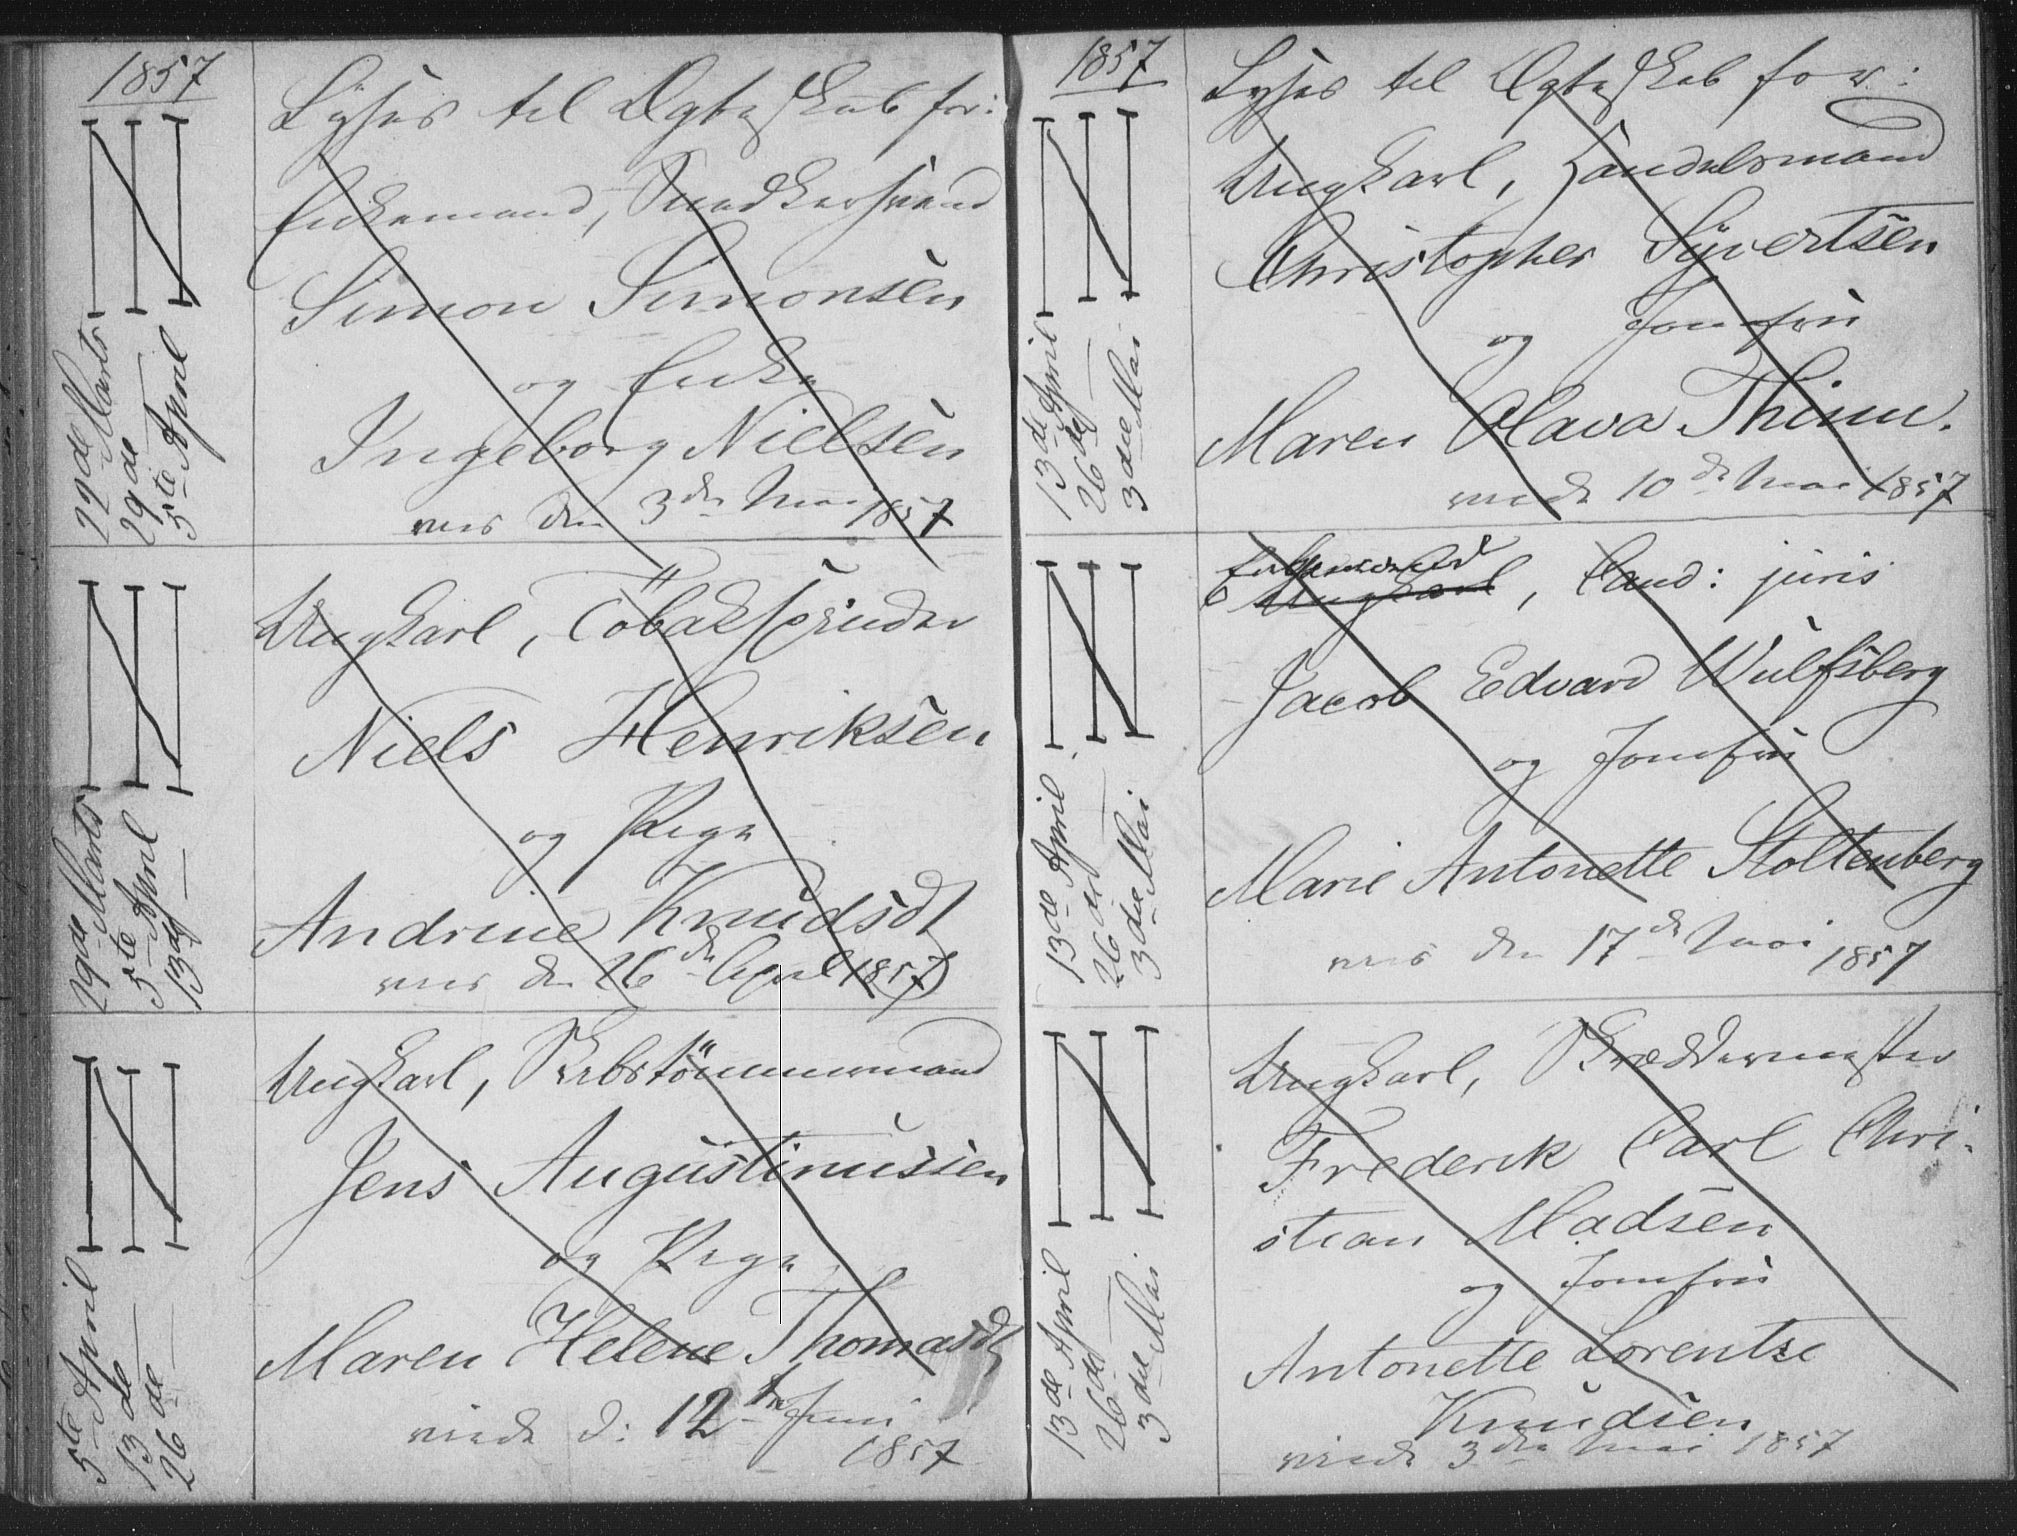 1857
Lyses til Ægteskab for:
22de Marts
29de —
5te April
Enkemand, Snedkersvend
Simon Simonsen
og Enke
Ingeborg Nielsen
viis den 3die Mai 1857
29de Marts
5te April
13de —
Ungkarl, Tobakspinder
Niels Henriksen
og Pige
Andrine Knudsdt
viis den 26de April 1857
5te April
13de —
26de —
Ungkarl, Skibstømmermand
Jens Augustinussen
og Pige
Maren Helene Thomasdt
viede d: 12te Juni
1857
1857
Lyses til Ægteskab for:
13de April
26de —
3die Mai
Ungkarl, Handelsmand
Christopher Syvertsen
og Jomfru
Maren Olava Thinn.
viede 10de Mai 1857
13de April
26de —
3die Mai
Enkemand
Ungkarl, Cand: juris
Jacob Edvard Wulfsberg
og Jomfru
Marie Antonette Stoltenberg
viis den 17de Mai 1857
13de April
26de —
3die Mai
Ungkarl, Skræddermester
Frederik Carl Chri-
stian Madsen
og Jomfru
Antonette Lorentze
Knudsen
viede 3die Mai 1857